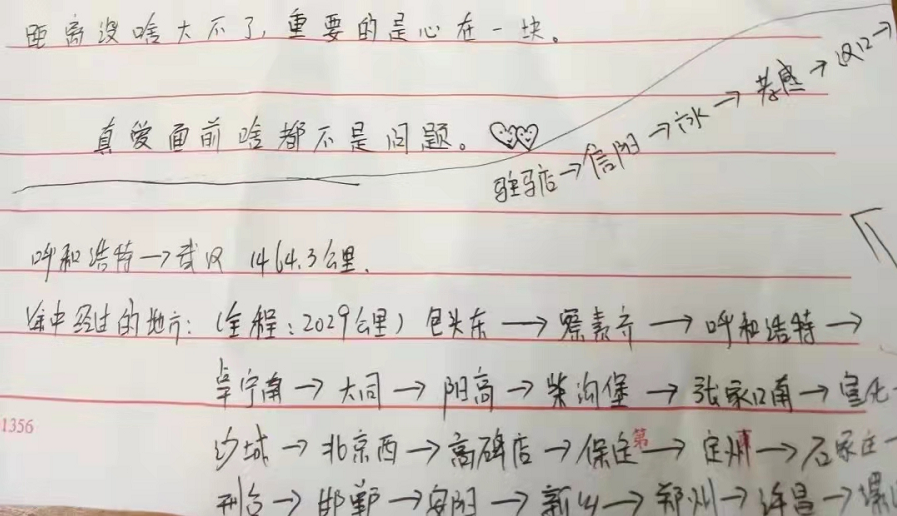 距离没啥大不了,重要的是心在一块。
真爱面前啥都不是问题。
驻马店→信阳→广水→孝感→汉口→
呼和浩特→武汉 1464.3公里.
途中经过的地方:(全程:2029公里)包头东→察素齐→呼和浩特→
卓宁南→大同→阳高→柴沟堡→张家口南→宣化
沙城→北京西→高碑店→保定→定州→石家庄
第 専
1356
邢台→邯郸→安阳→新乡→郑州→许昌→漯